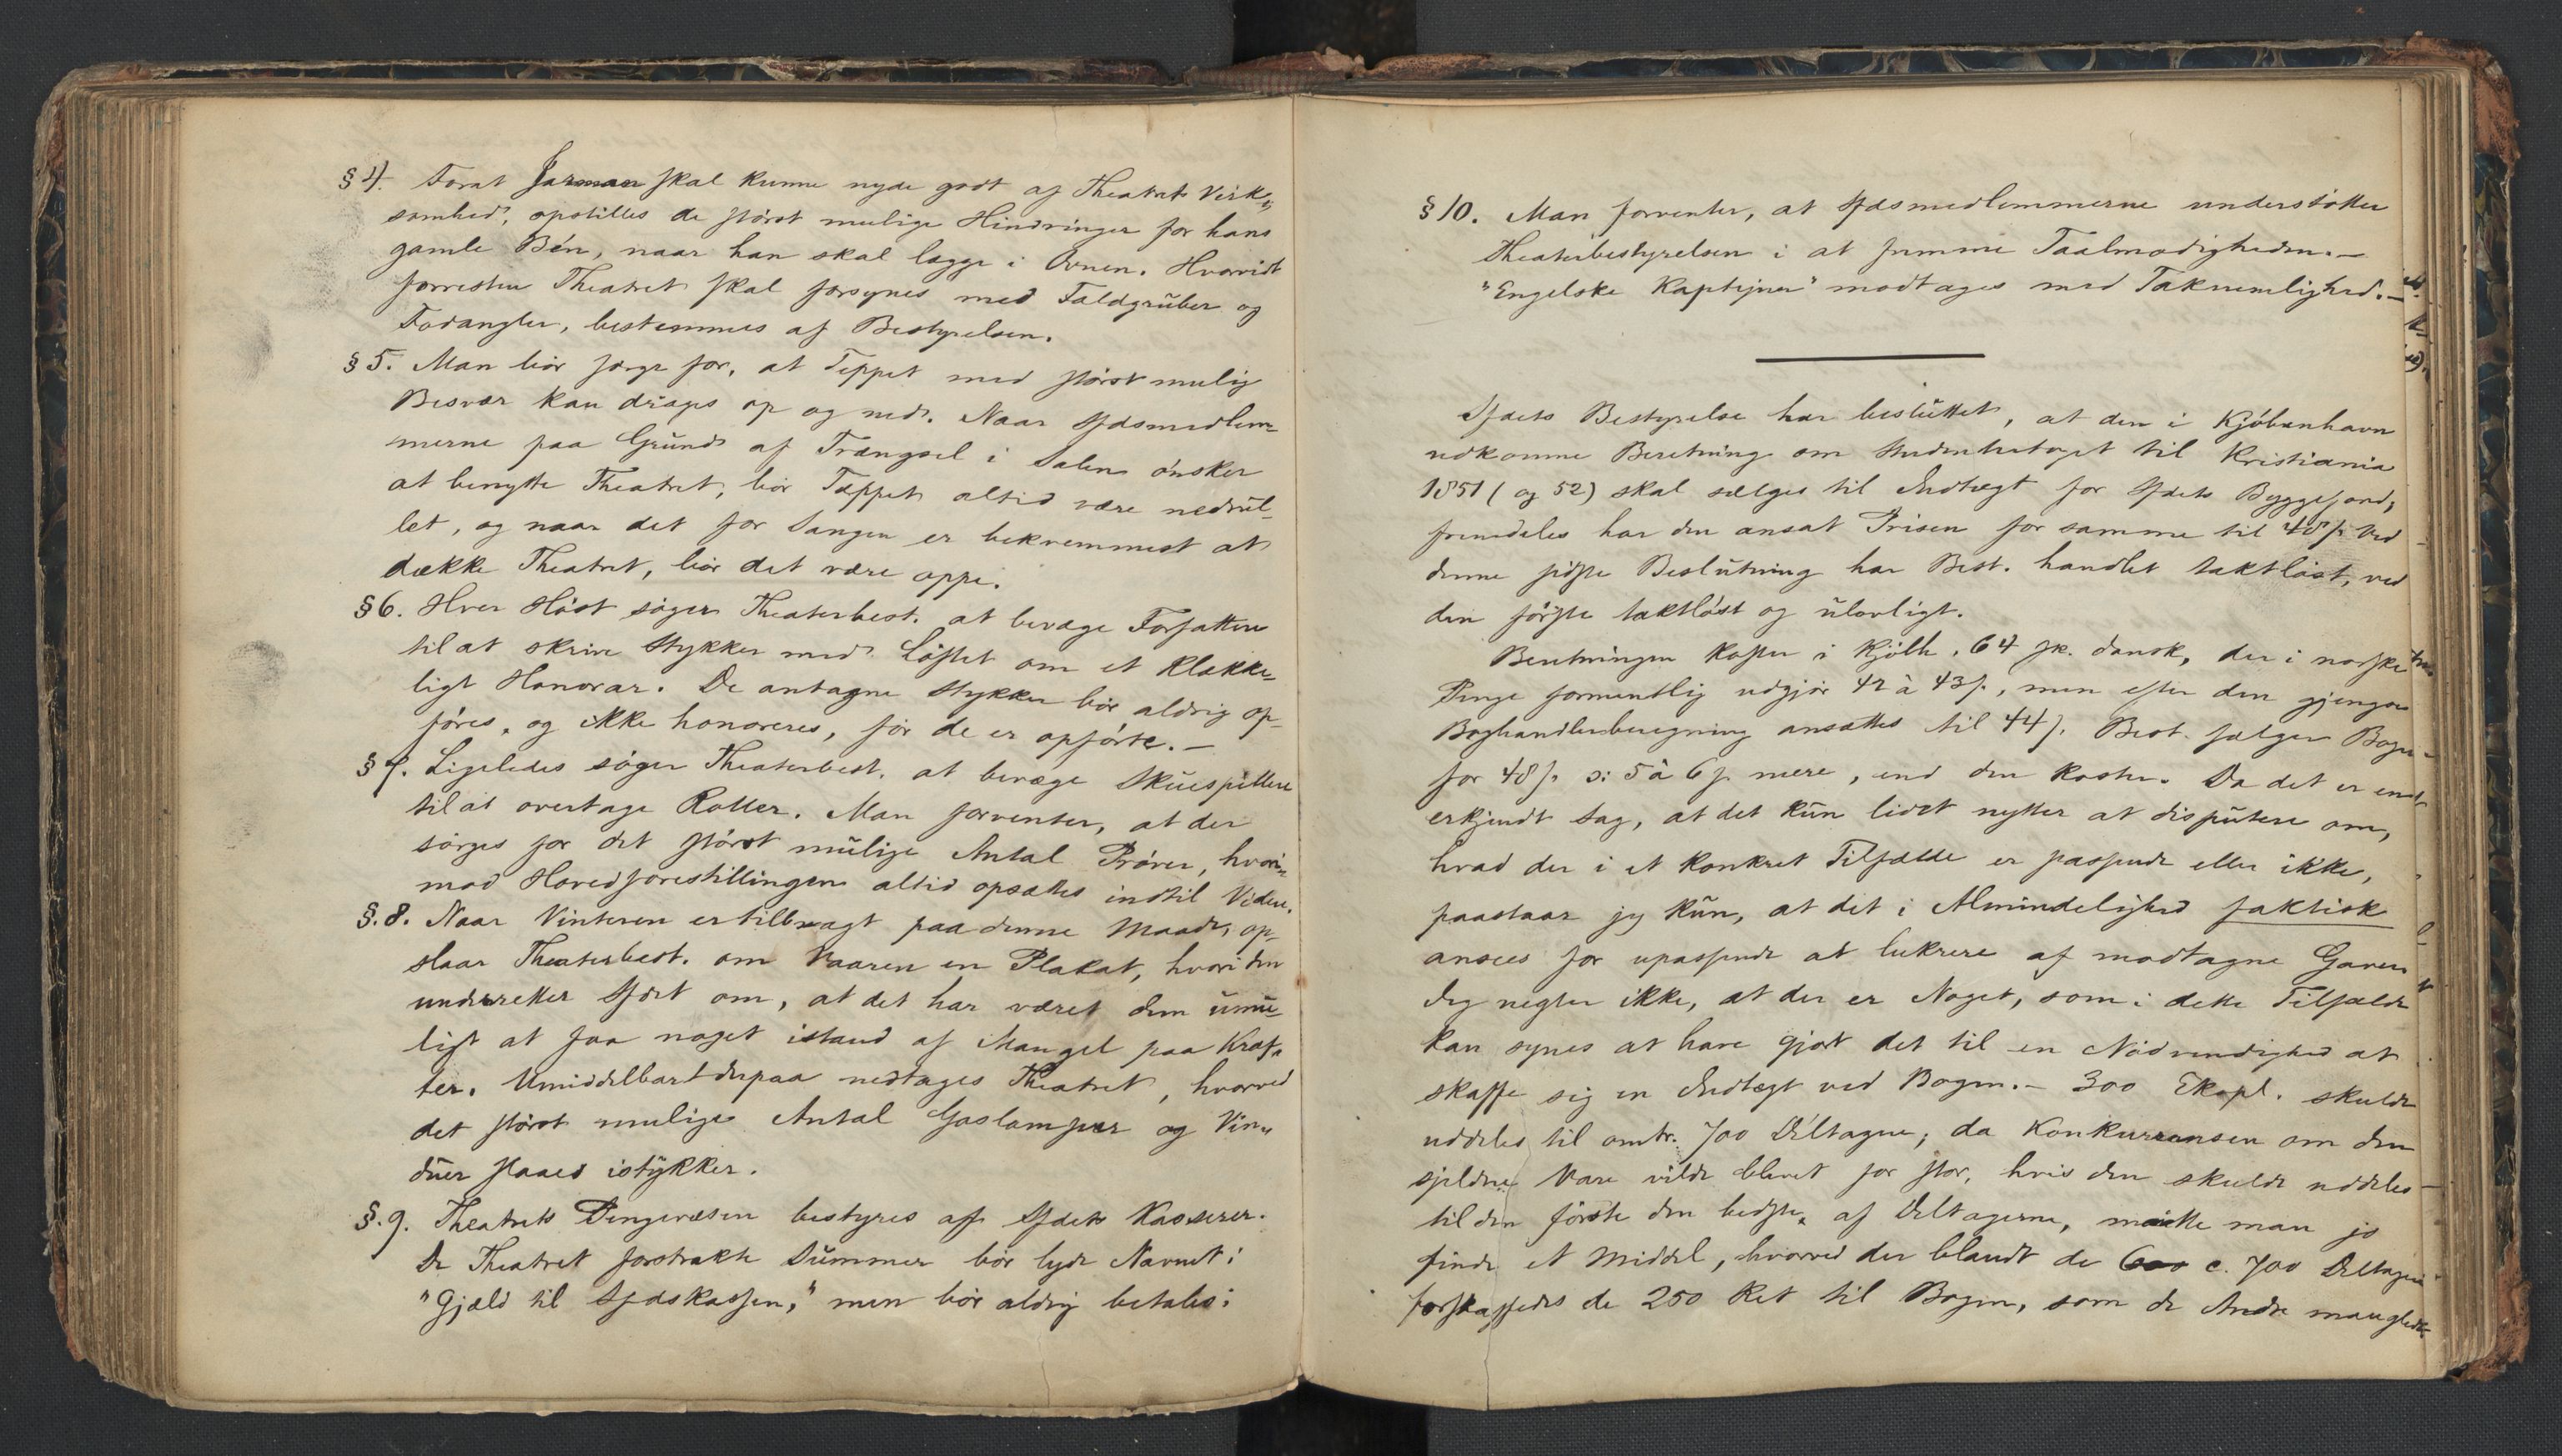 § 4. Forat Jarman skal kunne nyde godt af Theatrets Virk-
somhed, opstilles de størst mulige Hindringer for hans
gamle Bén, naar han skal lægge i Ovnen. Hvorvidt
forresten Theatret skal forsynes med Faldgruber og
Fodangler, bestemmes af Bestyrelsen.
§ 5. Man bør sørge for, at Teppet med størst mulig
Besvær kan drages op og ned. Naar Sfdsmedlem-
merne paa Grund af Trængsel i Salen ønsker
at benytte Theatret, bør Tæppet altid være nedrul-
let, og naar det for Sangen er bekvemmest at
dække Theatret, bør det være oppe.
§ 6. Hver Høst søger Theaterbest. at bevæge Forfattere
til at skrive Stykker med Løftet om et klække-
ligt Honorar. De antagne Stykker bør aldrig op-
føres, og ikke honoreres, før de er opførte. -
§ 7. Ligeledes søger Theaterbest. at bevæge Skuespillere
til at overtage Roller. Man forventer, at der
sørges for det størst mulige Antal Prøver, hvori-
mod Hovedforestillingen altid opsættes indtil Videre.
§. 8. Naar Vinteren er tilbragt paa denne Maade, op-
slaar Theaterbest. om Vaaren en Plakat, hvori den
underretter Sfdet om, at det har været dem umu-
ligt at faa noget istand af Mangel paa Kræf-
ter. Umiddelbart derpaa nedtages Theatret, hvorved
det størst mulige Antal Gaslamper og Vin-
duer slaaes istykker.
§. 9. Theatrets Pengevæsen bestyres af Sfdets Kasserer.
De Theatret forstrakte Summer bør lyde Navnet:
"Gjæld til Sfdskassen," men bør aldrig betales.
§ 10. Man forventer, at Sfdsmedlemmerne understøtter
Theaterbestyrelsen i at fremme Taalmodigheden. -
"Engelske Kaptejner" modtages med Taknemlighed. -
Sfdets Bestyrelse har besluttet, at den i Kjøbenhavn
udkomne Beretning om Studentertoget til Kristiania
1851 (og 52) skal sælges til Indtægt for Sfdets Byggefond;
fremdeles har den ansat Prisen for samme til 48 s. Ved
denne sidste Beslutning har Best. handlet taktløst, ved
den første taktløst og ulovligt.
Beretningen koster i Kjøbh. 64 sk. dansk, der i norske
Penge formentlig udgjør 42 à 43 s., men efter den gjængse
Boghandlerberegning ansættes til 44 s. Best. sælger Bogen
for 48 s. ɔ: 5 à 6 s. mere, end den koster. Da det er en
erkjendt Sag, at det kun lidet nytter at disputere om,
hvad der i et konkret Tilfælde er passende eller ikke,
paastaar jeg kun, at det i Almindelighed faktisk
ansees for upassende at lukrere af modtagne Gaver
Jeg negter ikke, at der er Noget, som i dette Tilfælde
kan synes at have gjort det til en Nødvendighed at
skaffe sig en Indtægt ved Bogen. - 300 Expl. skulde
uddeles til omtr. 700 Deltagere; da Konkurransen om den
sjeldne Vare vilde blevet for stor, hvis den skulde uddeles
til den første den bedste af Deltagerne, maatte man jo
finde et Middel, hvorved der blandt de c. 700 Deltagere
forskaffedes de 250 Ret til Bogen, som de Andre manglede